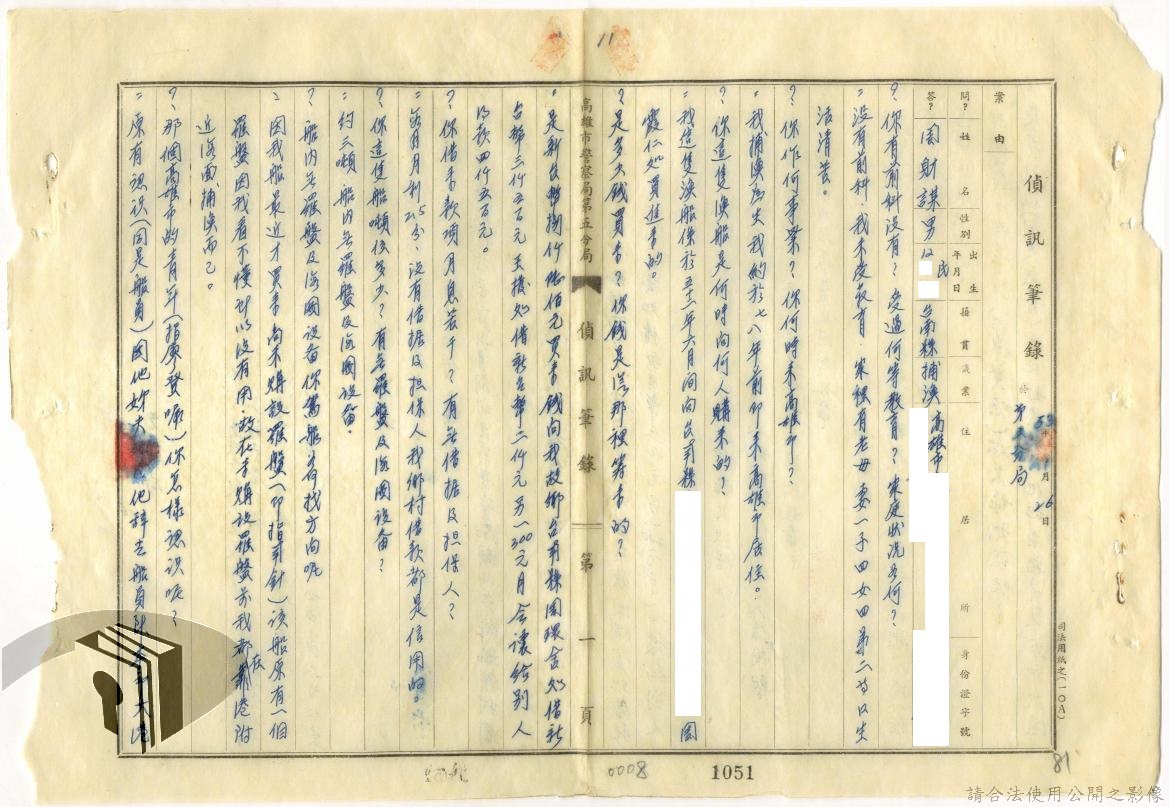 11
偵訊筆錄
53年 月26日
於第五分局
案由
問? 姓名 性別 出生年月日 籍貫 職業 住居所 身份證字號
答? 周財謀 男 民 台南縣 捕漁 高雄市
? 你有前科沒有? 受過何等教育? 家庭狀況如何?
: 沒有前科,我未受教育,家裡有老母、妻一子四女四弟二 以生
活清苦。
? 你作何事業? 你何時來高雄市?
: 我捕漁為生我約於七八年前即來高雄市居住。
? 你這隻漁船是何時向何人購來的?
: 我這隻漁船係於五十二年六月間向台南縣 周
霞仁處買進來的。
? 是多少錢買來? 你錢是從那裡籌來的?
高雄市警察局第五分局 偵訊筆錄 第一頁
: 是新台幣捌仟 佰元買來錢向我故鄉台南縣周環舍處借新
台幣三仟五百元 處借新台幣二仟元另一300元月會讓給別人
得款四仟五百元。
? 你借來款項月息若干? 有無借據及担保人?
: 每月月利2.5分、沒有借據及担保人我鄉村借款都是信用的。
? 你這隻船噸位多少? 有無羅盤及海圖設备?
: 約三噸,船內無羅盤及海圖設备。
? 船內無羅盤及海圖設备你駕船如何找方向呢
: 因我船最近才買來尚未購設羅盤(即指南針)該船原有一個
羅盤因我看不懂所以沒有用故在未購設羅盤前我都在港附
近海面捕漁而已。
? 那個高雄市的青年(指 登 )你怎樣認識呢?
: 原有認識(同是船員)因他 他辭去船員
司法用紙之(一0A)
0008
1051
81
請合法使用公開之影像